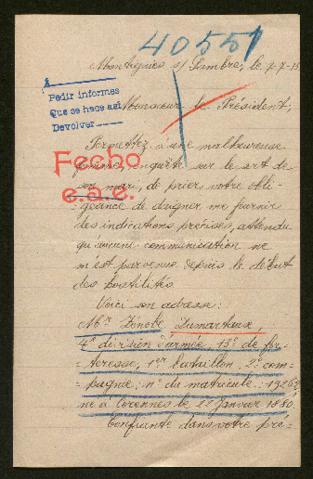 40551
Montignies s/ Sambre, le 7-7-15
Pedir informes
Que se hace así
Devolver
Monsieur le Président,
Fecho
e.a.e.
Permettez à une malheureuse
femme, enquête sur le sort de
son mari, de prier votre obli-
geance de daigner me fournir
des indications précises, attendu
qu'aucune communication ne
m'est parvenue depuis le début
des hostilités.
Voici son adresse:
Mr Zénobe Dumarteau,
4e division d'armée, 13e de for-
teresse, 1er bataillon, 2e com-
pagnie, no du matricule:
né à Corennes le 22 Janvier 1880.
Confiante dans votre pré-